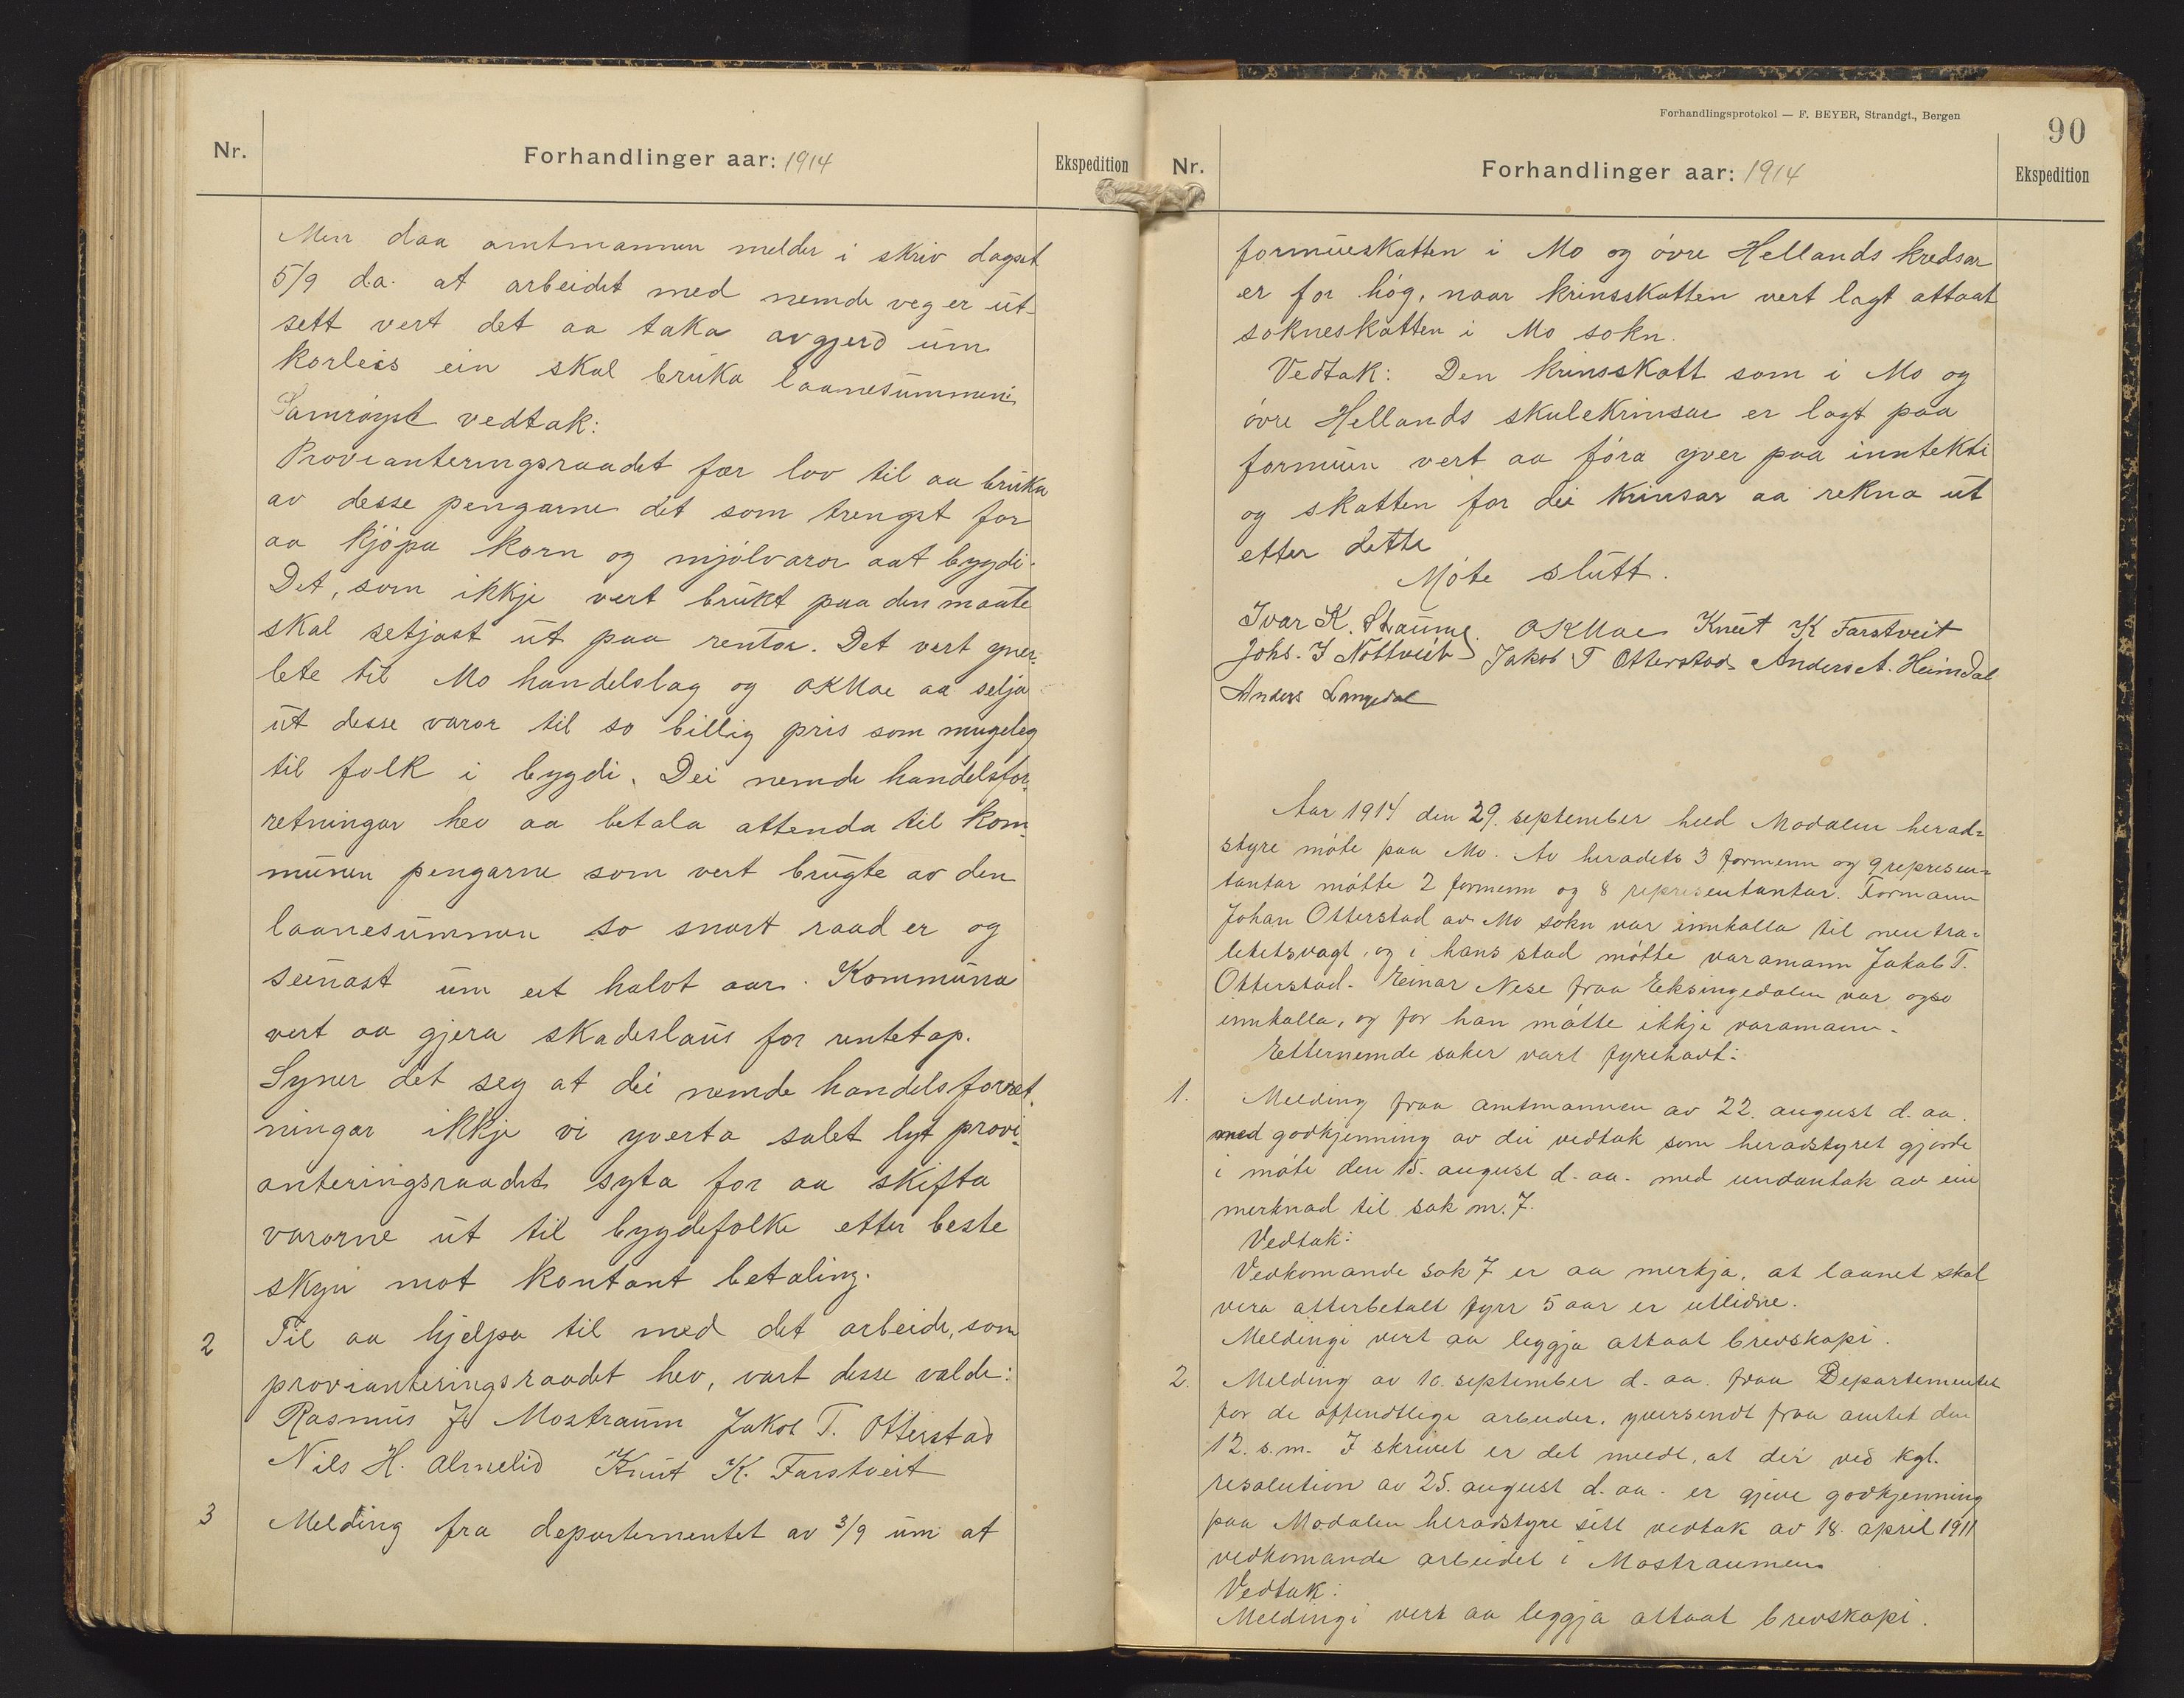 Nr.
Forhandlinger aar: 1914
Ekspedition
Men daa amtmannen melder i skriv dagset
5/9 d.a. at arbeidet med nemde veg er ut-
sett vert det aa taka avgjerd um
korleis ein skal bruka laanesummen.
Samrøyst vedtak:
Provianteringsraadet fær lov til aa bruka
av desse pengarne det som trengst for
aa kjøpa korn og mjølvaror aat bygdi.
Det, som ikkje vert brukt paa den maate
skal setjast ut paa rentor. Det vert yver-
lete til Mo handelslag og O K Moe aa selja
ut desse varor til so billig pris som mugeleg
til folk i bygdi. Dei nemde handelsfor-
retningar hev aa betala attende til kom-
munen pengarne som vert brugte av den
laanesummen so snart raad er og
seinast um eit halvt aar. Kommuna
vert aa gjera skadeslaus for rentetap.
Syner det seg at dei nemde handelsforret-
ningar ikkje vi yverta salet lyt provi-
anteringsraadet syta for aa skifta
vararne ut til bygdefolke etter beste
skyn mot kontant betaling.
2 Til aa hjelpa til med det arbeide, som
provianteringsraadet hev, vart desse valde:
Rasmus J Mostraum Jakob T. Otterstad
Nils H. Almelid Knut K. Farstveit
3 Melding fra departementet av 3/9 um at
Forhandlingsprotokol — F. BEYER, Strandgt., Bergen
90
Nr.
Forhandlinger aar: 1914
Ekspedition
formueskatten i Mo og øvre Hellands kredsar
er for høg, naar krinsskatten vert lagt attaat
sokneskatten i Mo sokn.
Vedtak: Den krinsskatt som i Mo og
øvre Hellands skulekrinsar er lagt paa
formuen vert aa føra yver paa inntekti
og skatten for dei krinsar aa rekna ut
etter dette
Møte slutt.
Ivar K. Straume. O K Moe Knut K Farstveit
Johs. I Nottveit Jakob T Otterstad Anders A. Heimdal
Anders Langedal
Aar 1914 den 29. september heed Modalen herad-
styre møte paa Mo. Av heradets 3 formenn og 9 represen-
tantar møtte 2 formenn og 8 representantar. Formann
Johan Otterstad av Mo sokn var innkalla til neutra-
litetsvagt, og i hans stad møtte varamann Jakob T.
Otterstad. Einar Nese fraa Eksingedalen var ogso
innkalla, og for han møtte ikkje varamann.
Etternemde saker vart fyrehavt:
1. Melding fraa amtmannen av 22. august d. aa.
med godkjenning av dei vedtak som heradstyret gjorde
i møte den 15. august d. aa. med undantak av ein
merknad til sak nr. 7.
Vedtak:
Vedkomande sak 7 er aa merkja, at laanet skal
vera atterbetalt fyrr 5 aar er utlidne.
Meldingi vert aa leggja attaat brevskapi.
2. Melding av 10. september d. aa. fraa Departementet
for de offendtlige arbeider, yversendt fraa amtet den
12. s. m. I skrivet er det meldt, at dei ved kgl.
resolution av 25. august d. aa. er gjeve godkjenning
paa Modalen heradstyre sitt vedtak av 18. april 1911
vedkomande arbeidet i Mostraumen.
Vedtak:
Meldingi vert aa leggja attaat brevskapi.